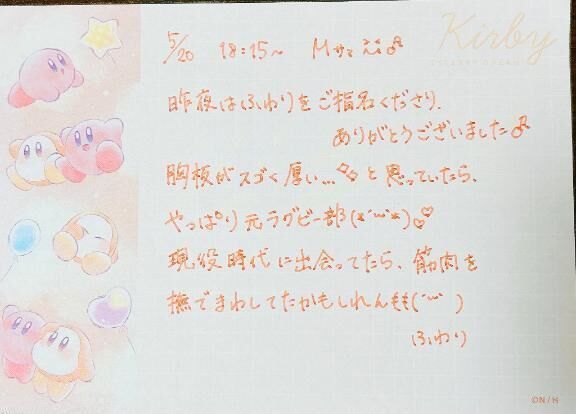 Kirby
5/20 18:15~ Mサマ
昨夜はふわりをご指名くださり、
ありがとうございました
胸板がスゴく厚い…と思っていたら、
やっぱり元ラグビー部(*´︶`*)♡
現役時代に出会ってたら、筋肉を
撫でまわしてたかもしれん(´︶` )
ふわり
©N / H